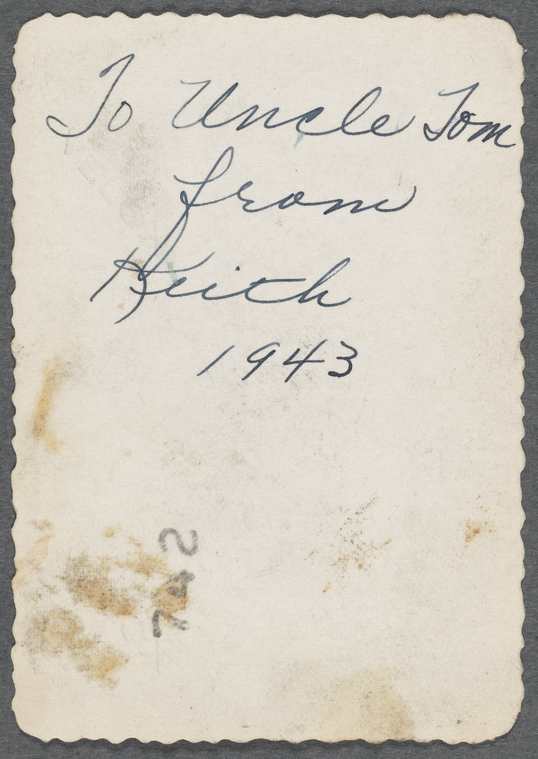 To Uncle Tom
from
Keith
1943
742